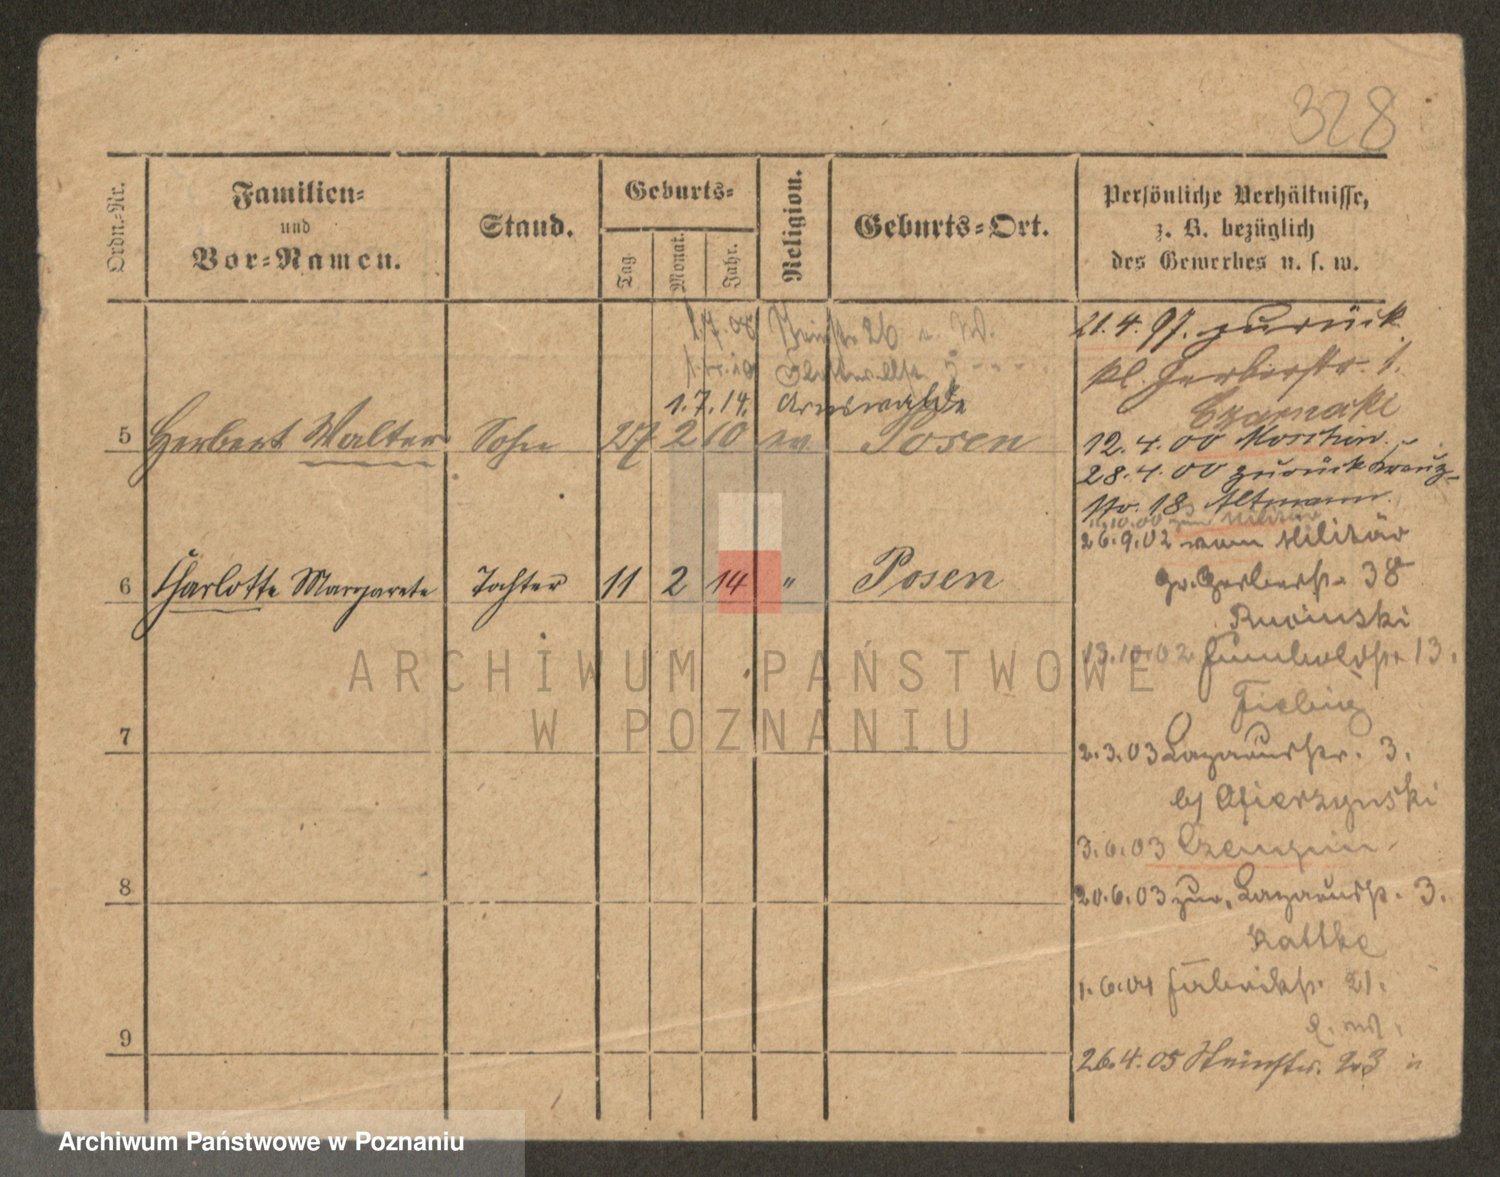 328
Ordn.-Nr.
Familien-
und
Vor-Namen.
Stand.
Geburts-
Tag.
Monat.
Jahr.
Religion.
Geburts-Ort.
Persönliche Verhältnisse,
z. B. bezüglich
des Gewerbes u. s. w.
1.7.14. Arnswalde
5 Herbert Walter Sohn 27 2 10 Posen
6 Charlotte Margarete Tochter 11 2 14 " Posen
7
8
9
21.4.97. zurück
kl. Gerberstr. 1.
Czarnecki
12.4.00 Moschin
28.4.00 zurück Kreuz-
str. 18 Altmann
zum Militär
26.9.02 vom Militär
Gr. Gerberstr. 38
Rucinski
13.10.02 Humboldtstr. 13.
Fiebig
2.3.03 Lazarusstr. 3.
3.6.03
20.6.03 zur. Lazarusstr. 3.
Rattke
1.6.04 Fabrikstr. 21.
26.4.05
ARCHIWUM PAŃSTWOWE
W POZNANIU
Archiwum Państwowe w Poznaniu